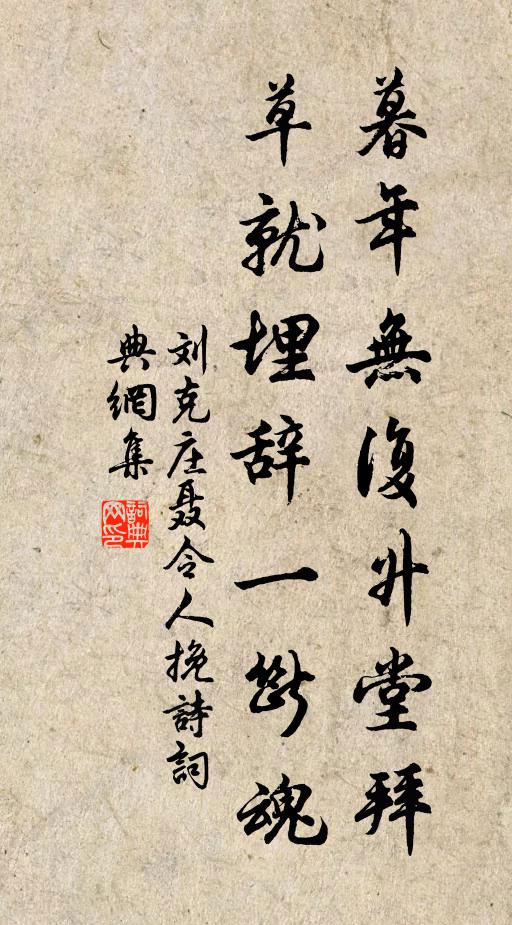 暮年無復升堂拜
草就埋辞一断魂
刘克庄聂令人挽詩詞
典網集
詞典網印